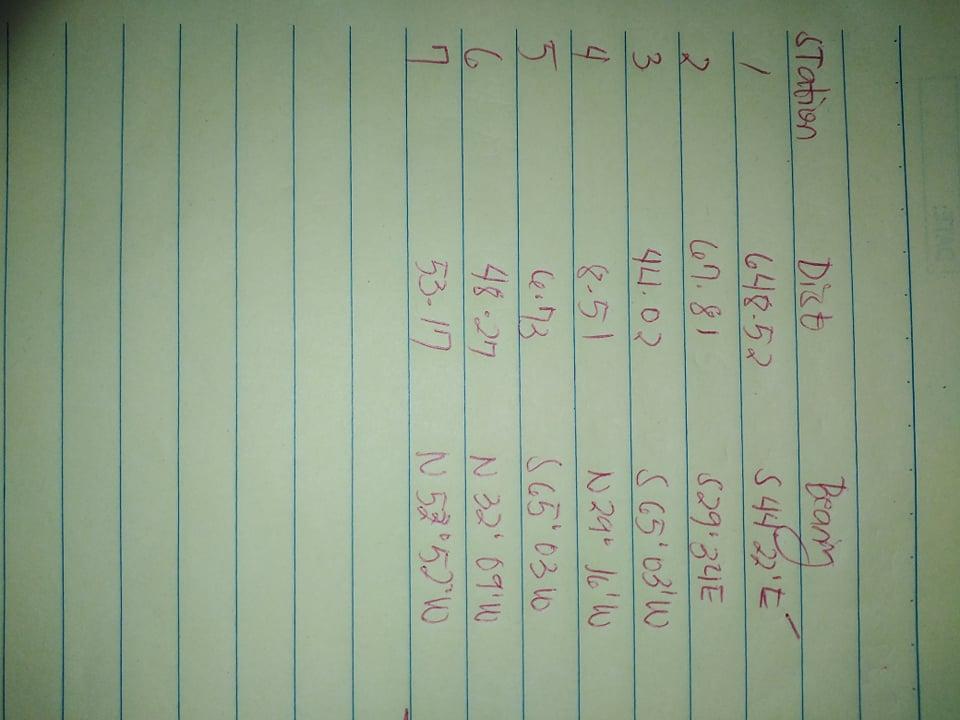 Station Dist Bearing
1 648.52 S 44° 22' E
2 67.81 S 29° 34 E
3 44.02 S 65° 03' W
4 8.51 N 29° 16' W
5 6.73 S 65° 03 W
6 48.27 N 32° 09' W
7 53.17 N 52° 52' W